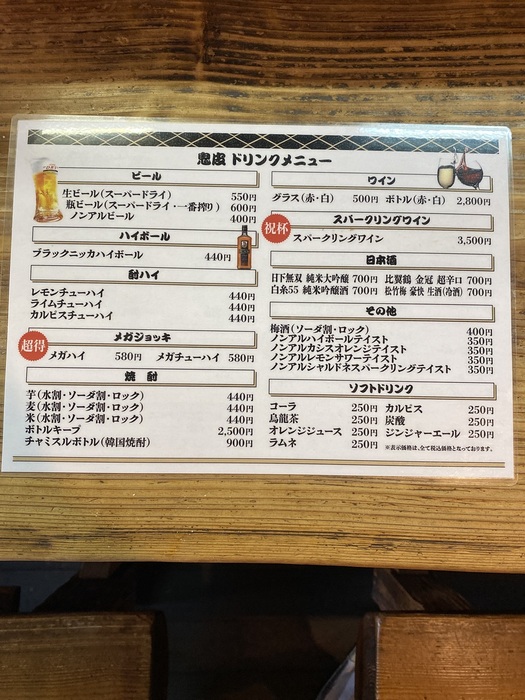 ドリンクメニュー
ビール
生ビール(スーパードライ) 550円
瓶ビール(スーパードライ・一番搾り) 600円
ノンアルビール 400円
ハイボール
ブラックニッカハイボール 440円
酎ハイ
レモンチューハイ 440円
ライムチューハイ 440円
カルピスチューハイ 440円
メガジョッキ
超得
メガハイ 580円 メガチューハイ 580円
焼 酎
芋(水割・ソーダ割・ロック) 440円
麦(水割・ソーダ割・ロック) 440円
米(水割・ソーダ割・ロック) 440円
ボトルキープ 2,500円
チャミスルボトル(韓国焼酎) 900円
ワイン
グラス(赤・白) 500円 ボトル(赤・白) 2,800円
スパークリングワイン
祝杯
スパークリングワイン 3,500円
日本酒
日下無双 純米大吟醸 700円 比翼鶴 金冠 超辛口 700円
白糸55 純米吟醸酒 700円 松竹梅 豪快 生酒(冷酒) 700円
その他
梅酒(ソーダ割・ロック) 400円
ノンアルハイボールテイスト 350円
ノンアルカシスオレンジテイスト 350円
ノンアルレモンサワーテイスト 350円
ノンアルシャルドネスパークリングテイスト 350円
ソフトドリンク
コーラ 250円 カルピス 250円
烏龍茶 250円 炭酸 250円
オレンジジュース 250円 ジンジャーエール 250円
ラムネ 250円
※表示価格は、全て税込価格となっております。